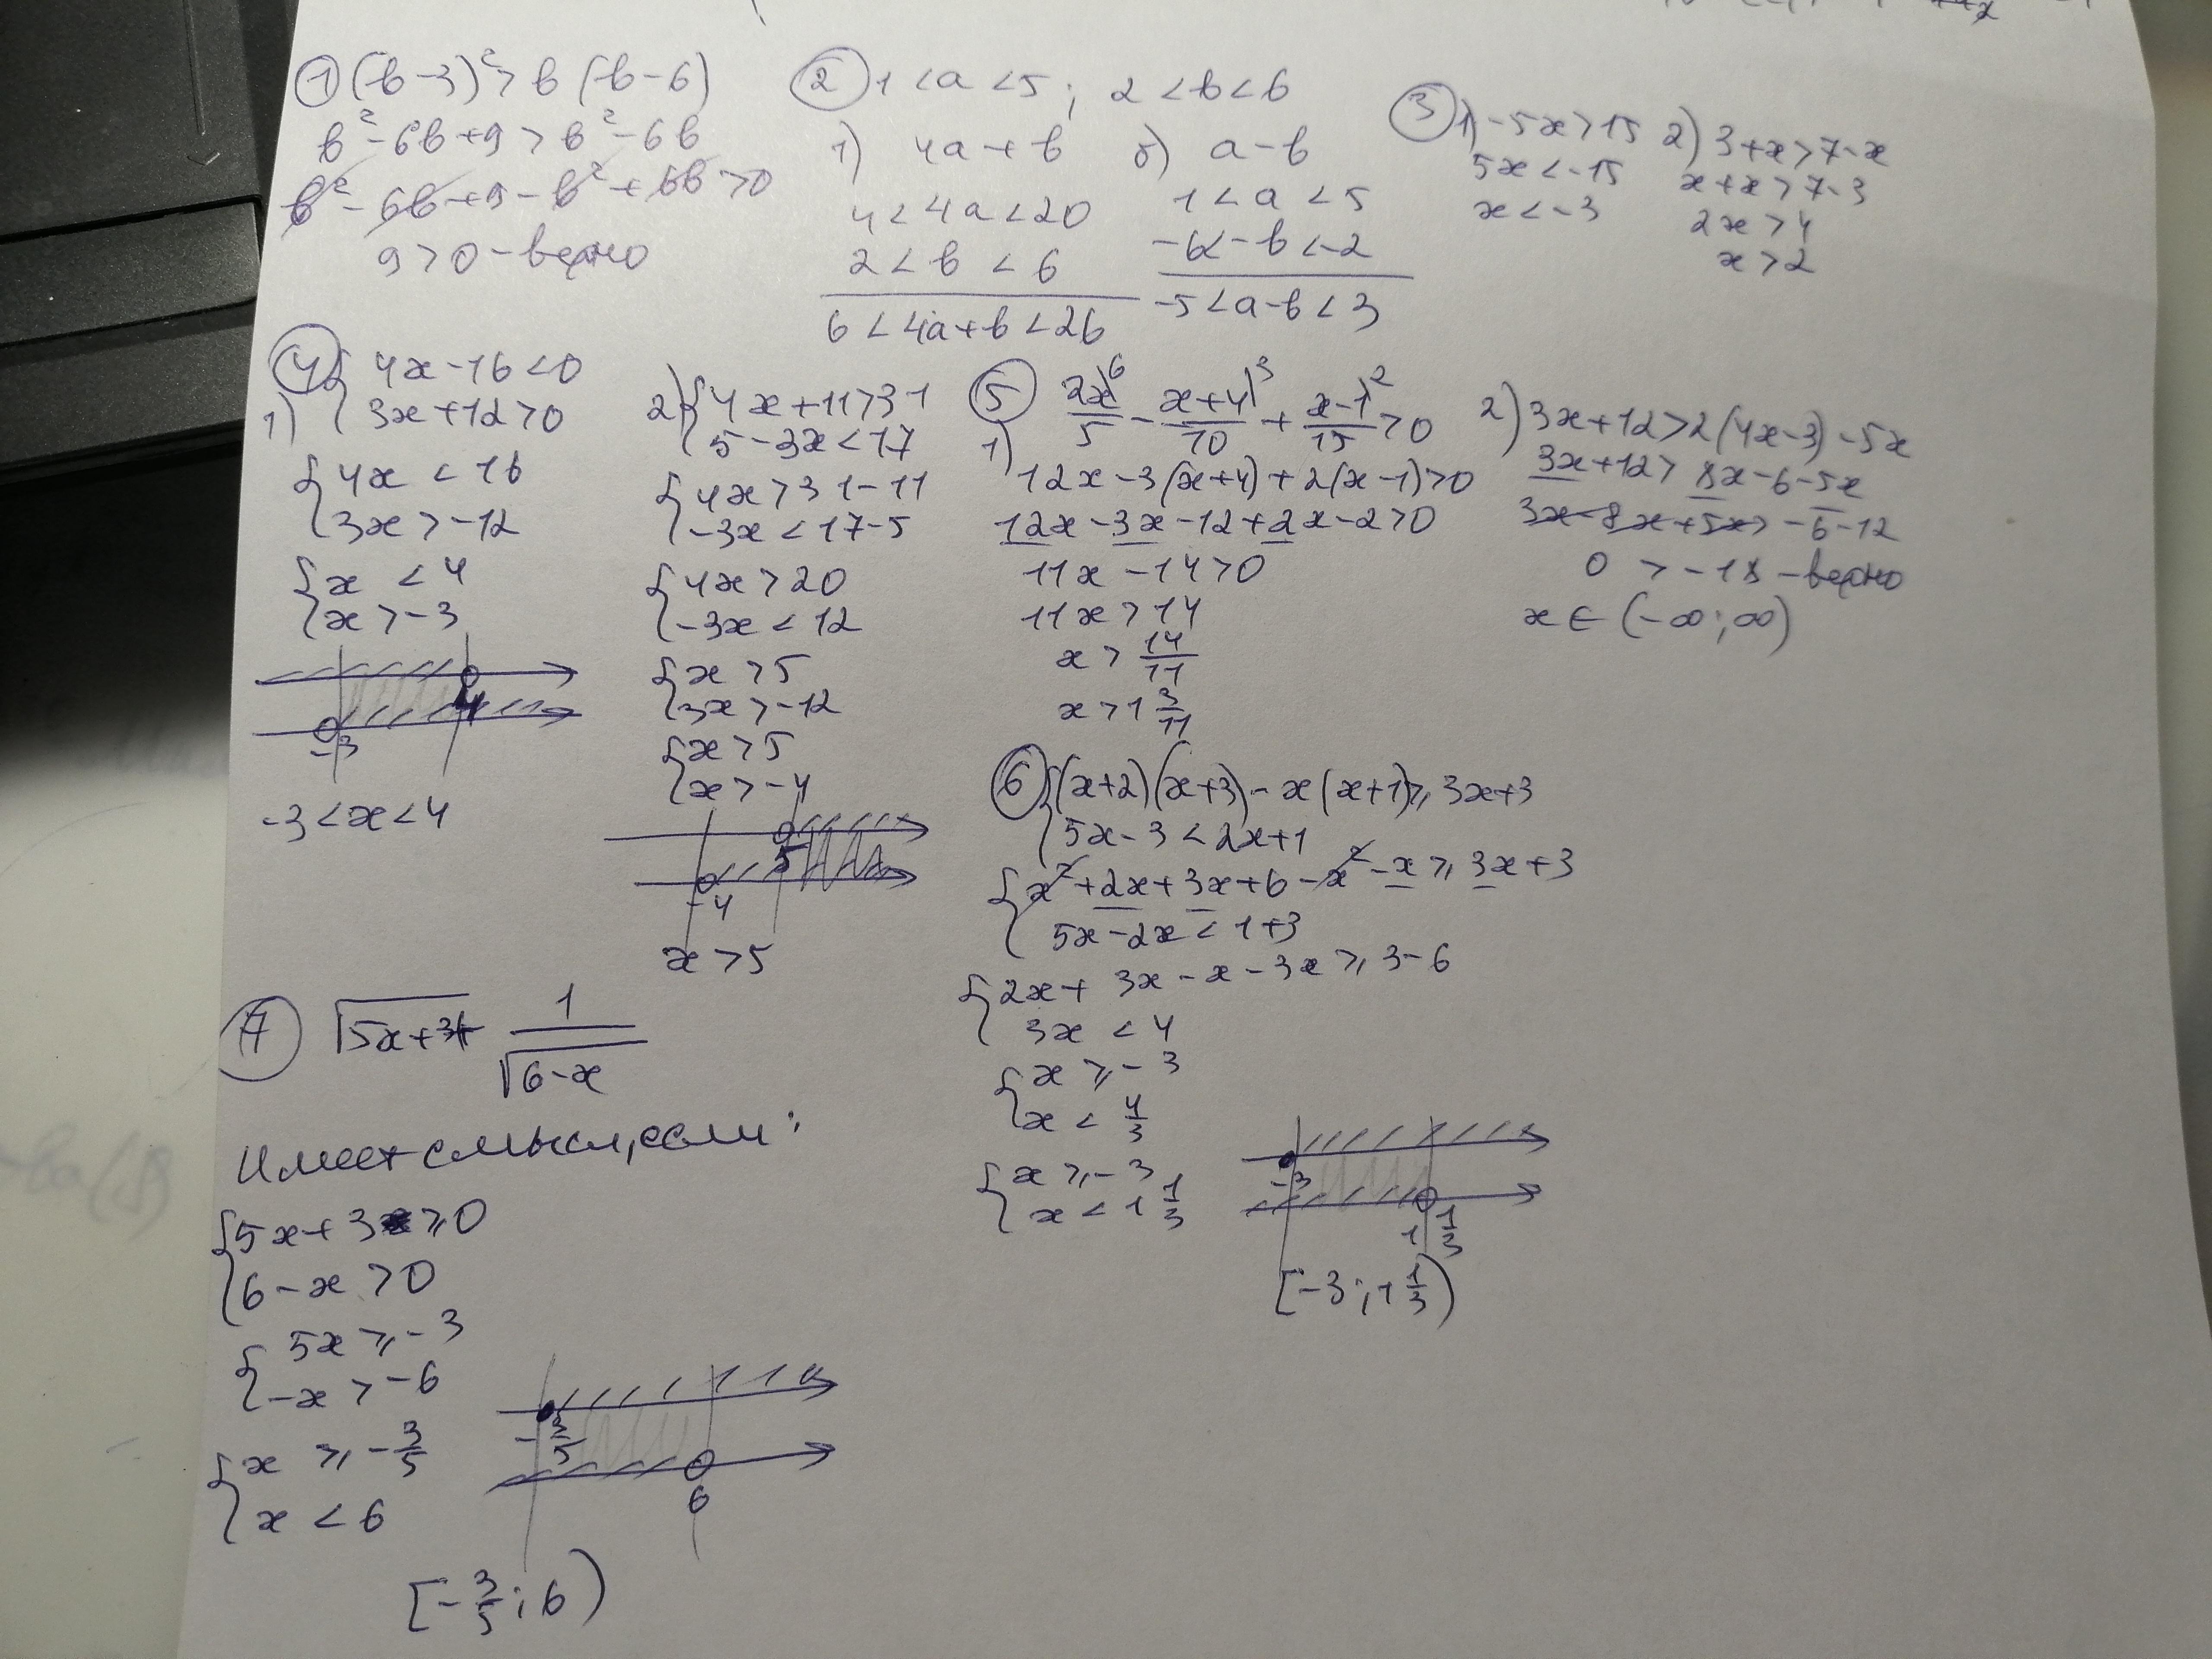 ① (b-3)² > b(b-6)
b²-6b+9 > b²-6b
b²-6b+9-b²+6b>0
9>0 - верно
② 1<a<5; 2<b<6
1) 4a+b
4<4a<20
2<b<6
6<4a+b<26
б) a-b
1<a<5
-6<-b<-2
-5<a-b<3
③ 1) -5x>15
5x<-15
x<-3
2) 3+x>7-x
x+x>7-3
2x>4
x>2
④ 1) { 4x-16<0
3x+12>0
{ 4x<16
3x>-12
{ x<4
x>-3
4
-3
-3<x<4
2) { 4x+11>31
5-3x<17
{ 4x>31-11
-3x<17-5
{ 4x>20
-3x<12
{ x>5
3x>-12
{ x>5
x>-4
5
-4
x>5
⑤ 1) 2x/5 ⁶ - x+4/10 ³ + x-1/15 ² >0
12x-3(x+4)+2(x-1)>0
12x-3x-12+2x-2>0
11x-14>0
11x>14
x>14/11
x>1 3/11
2) 3x+12>2(4x-3)-5x
3x+12>8x-6-5x
3x-8x+5x>-6-12
0>-18 - верно
x∈(-∞;∞)
⑥ { (x+2)(x+3)-x(x+1)⩾3x+3
5x-3<2x+1
{ x²+2x+3x+6-x²-x⩾3x+3
5x-2x<1+3
{ 2x+3x-x-3x⩾3-6
3x<4
{ x⩾-3
x<4/3
{ x⩾-3
x<1 1/3
-3
1 1/3
[-3;1 1/3)
⑦ √5x+3 + 1/√6-x
Имеет смысл, если:
{ 5x+3⩾0
6-x>0
{ 5x⩾-3
-x>-6
{ x⩾-3/5
x<6
-3/5
6
[-3/5;6)